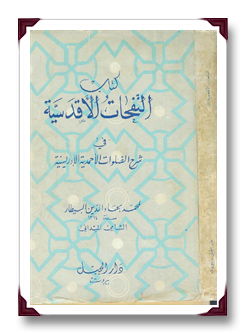 كتاب
النفحات الأقدسية
في
شرح الصلوات الأحمدية الإدريسية
محمد بهاء الدين البيطار
دار الجيل
بيروت